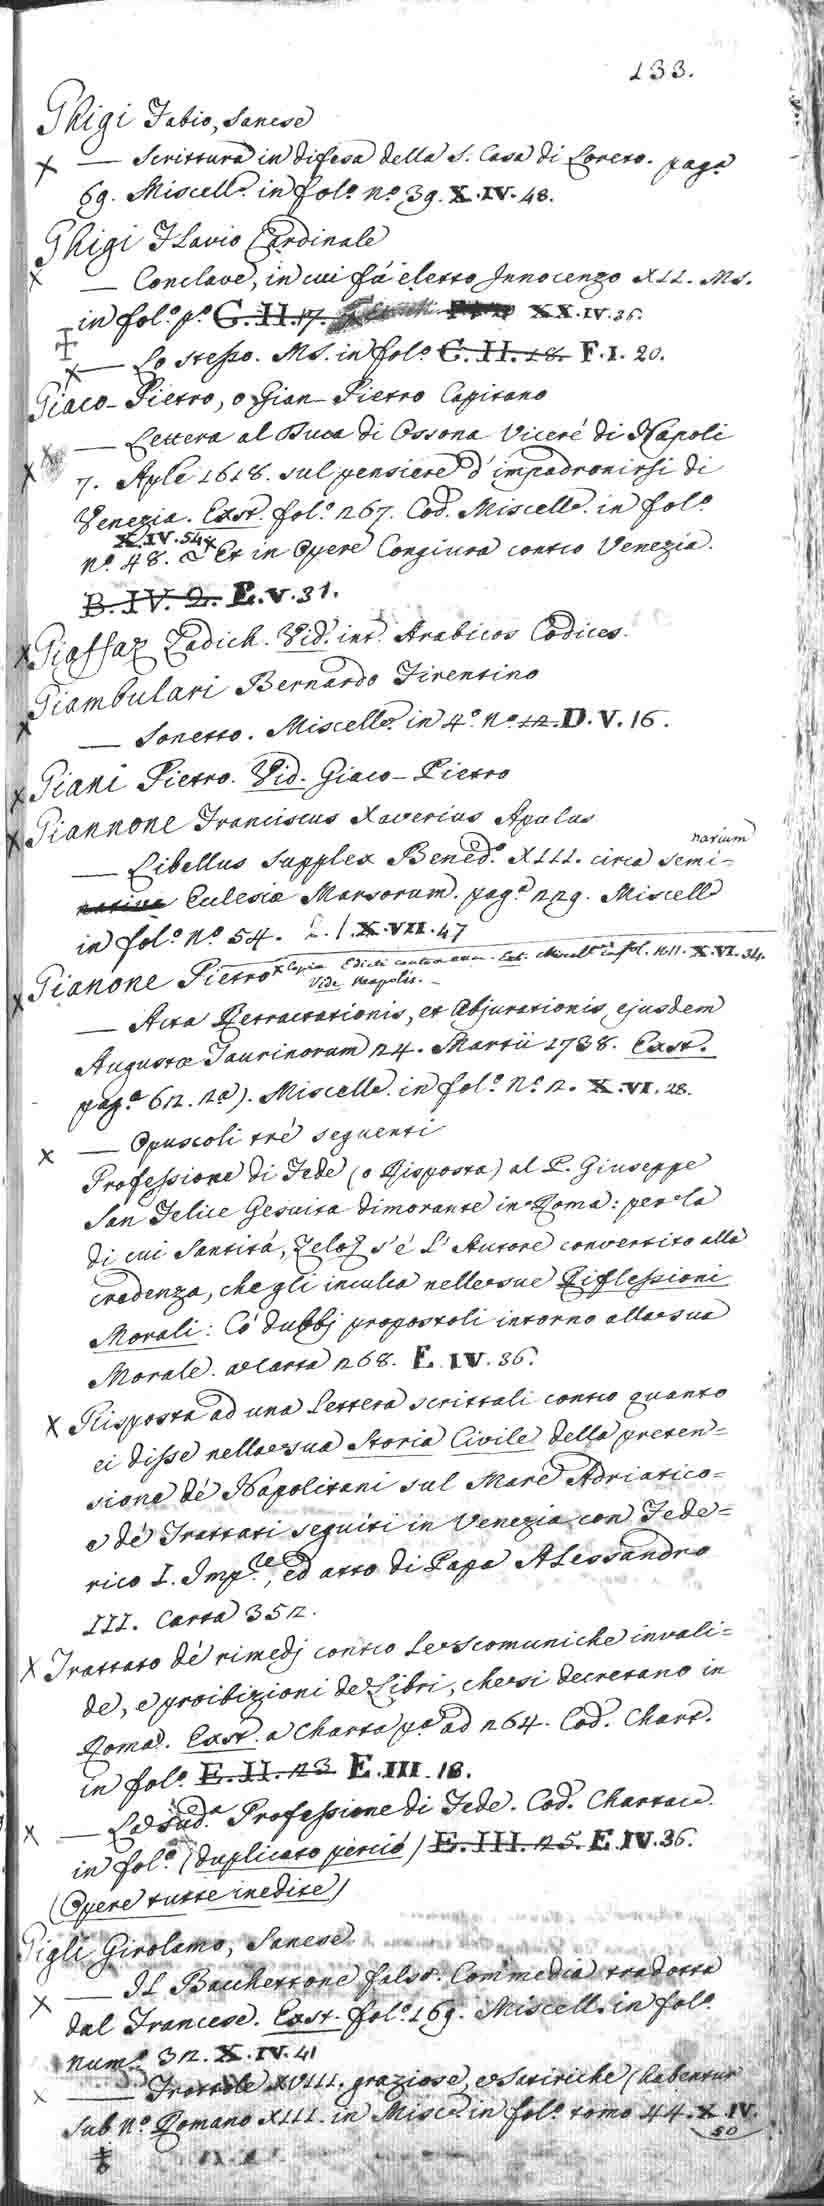 133.
Ghigi Fabio, Sanese
— Scrittura in difesa della S. Casa di Loreto. pag.a
69. Miscell.o in fol.o n.o 39. X.IV.48.
Ghigi Flavio Cardinale
— Conclave, in cui fù eletto Innocenzo XII. Ms.
in fol.o p.o G.II.17. XX.IV.36.
— Lo stesso. MS. in fol.o G.II.18. F.I.20.
Giaco-Pietro, o Gian-Pietro Capitano
— Lettera al Duca di Ossona Viceré di Napoli
7. Aple 1618. sul pensiere d'impadronirsi di
Venezia. Exst. fol.o 267. Cod. Miscell.o in fol.o
X.IV.54
n.o 48. Et in Opere Congiura contro Venezia.
B.IV.2. E.V.31.
Giaffaz Zadich. Vid. int. Arabicos Codices.
Giambulari Bernardo Firentino
— Sonetto. Miscell.o in 4.o n.o 12. D.V.16.
Giani Pietro. Vid. Giaco-Pietro
Giannone Franciscus Xaverius Apulus
— Libellus supplex Bened.o XIII. circa semi=
narium
Eclesiæ Marsorum. pag.a 229. Miscell.o
in fol.o n.o 54. X.VII.47
Gianone Pietro x Copia Edicti contra eum. Ext. Miscell.o in fol. n.11. X.VI.34.
Vide Neapolis. —
— Acta Retractationis, et Abjurationis, ejusdem
Augustæ Taurinorum 24. Martii 1738. Exst.
pag.a 62. 2.a). Miscell.o in fol.o N.o 2. X.VI.28.
— Opuscoli trè seguenti
Professione di Fede (o Risposta) al P. Giuseppe
San Felice Gesuita dimorante in Roma: per la
di cui Santità, Zelo s'è l'Autore convertito alla
credenza, che gli inculca nelle sue Riflessioni
Morali: Có dubbj propostoli intorno alla sua
Morale. a Carta 268. E.IV.36.
Risposta ad una Lettera scrittali contro quanto
ei disse nella sua Storia Civile della preten=
sione dè Napolitani sul Mare Adriatico=
e dè Trattati seguiti in Venezia con Fede=
rico I. Imp.re, ed atto di Papa Alessandro
III. Carta 352.
Trattato dè rimedj contro le scomuniche invali=
de, e proibizioni de Libri, che si decretano in
Roma. Exst. a Charta p.a ad 264. Cod. Chart.
in fol.o E.II.23 E.III.18.
— La sud.a Professione di Fede. Cod. Chartac.
in fol.o (duplicato perciò) E.III.25. E.IV.36.
(Opere tutte inedite)
Gigli Girolamo, Sanese
— Il Bacchettone falso. Commedia tradotta
dal Francese. Exst. fol.o 169. Miscell. in fol.o
num.o 32. X.IV.41
— Frottole XVIII. graziose, e Satiriche (habentur
sub N.o Romano XIII. in Misc.o in fol.o tomo 44. X.IV.
50